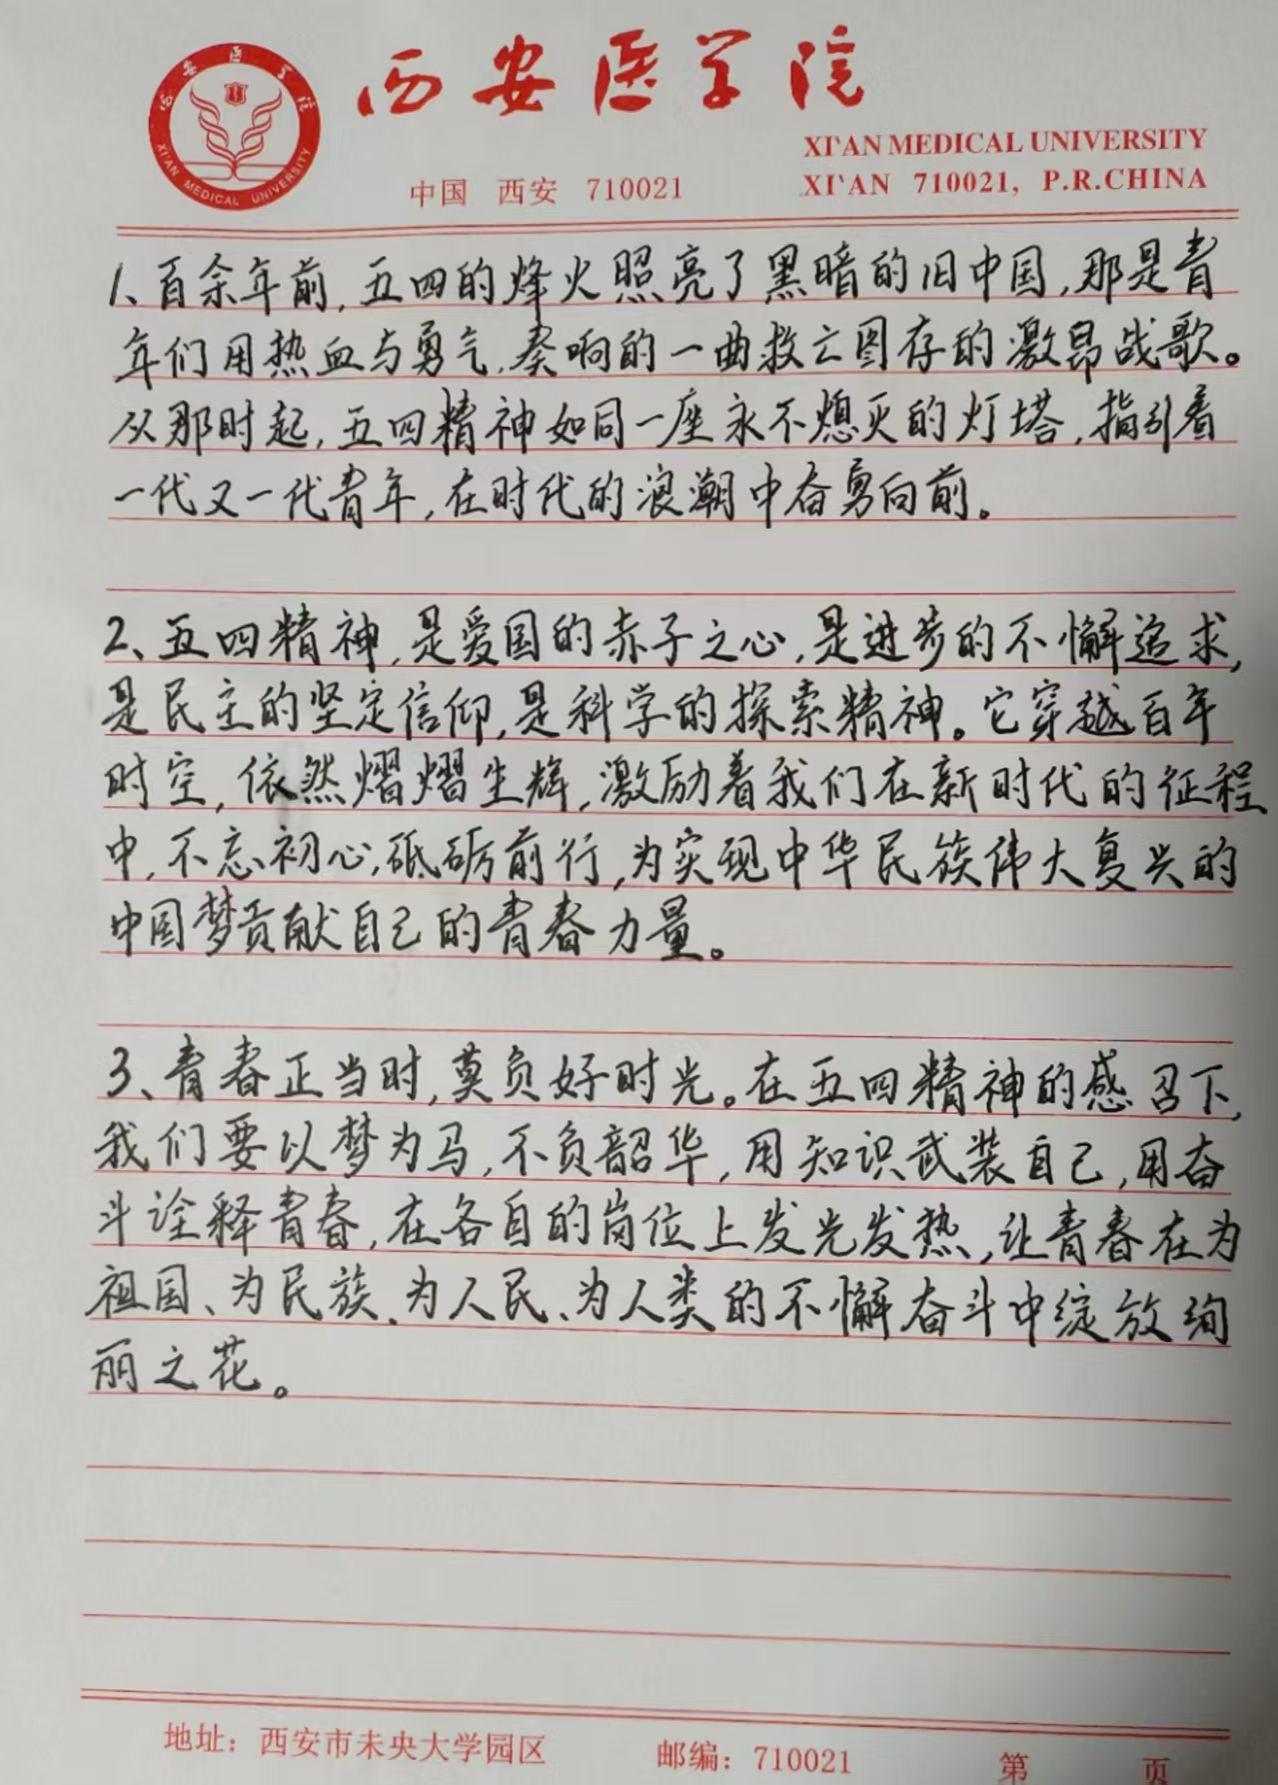 西安医学院
XI'AN MEDICAL UNIVERSITY
西安医学院
XI'AN MEDICAL UNIVERSITY
中国 西安 710021
XI'AN 710021, P.R.CHINA
1、百余年前,五四的烽火照亮了黑暗的旧中国,那是青
年们用热血与勇气,奏响的一曲救亡图存的激昂战歌。
从那时起,五四精神如同一座永不熄灭的灯塔,指引着
一代又一代青年,在时代的浪潮中奋勇向前。
2、五四精神,是爱国的赤子之心,是进步的不懈追求,
是民主的坚定信仰,是科学的探索精神。它穿越百年
时空,依然熠熠生辉,激励着我们在新时代的征程
中,不忘初心,砥砺前行,为实现中华民族伟大复兴的
中国梦贡献自己的青春力量。
3、青春正当时,莫负好时光。在五四精神的感召下,
我们要以梦为马,不负韶华,用知识武装自己,用奋
斗诠释青春,在各自的岗位上发光发热,让青春在为
祖国、为民族、为人民、为人类的不懈奋斗中绽放绚
丽之花。
地址：西安市未央大学园区 邮编：710021 第 页